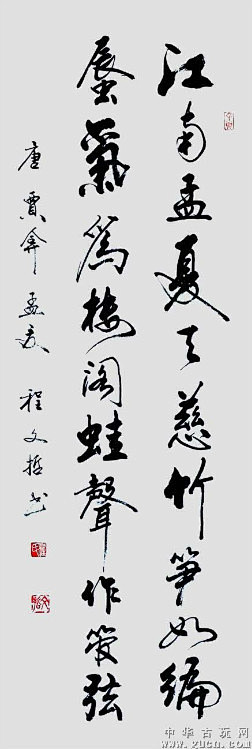 江南孟夏天慈竹笋如编
蜃氣爲楼阁蛙聲作管弦
唐 賈弇 孟夏 程文哲书
中华古玩网
www.gucn.com